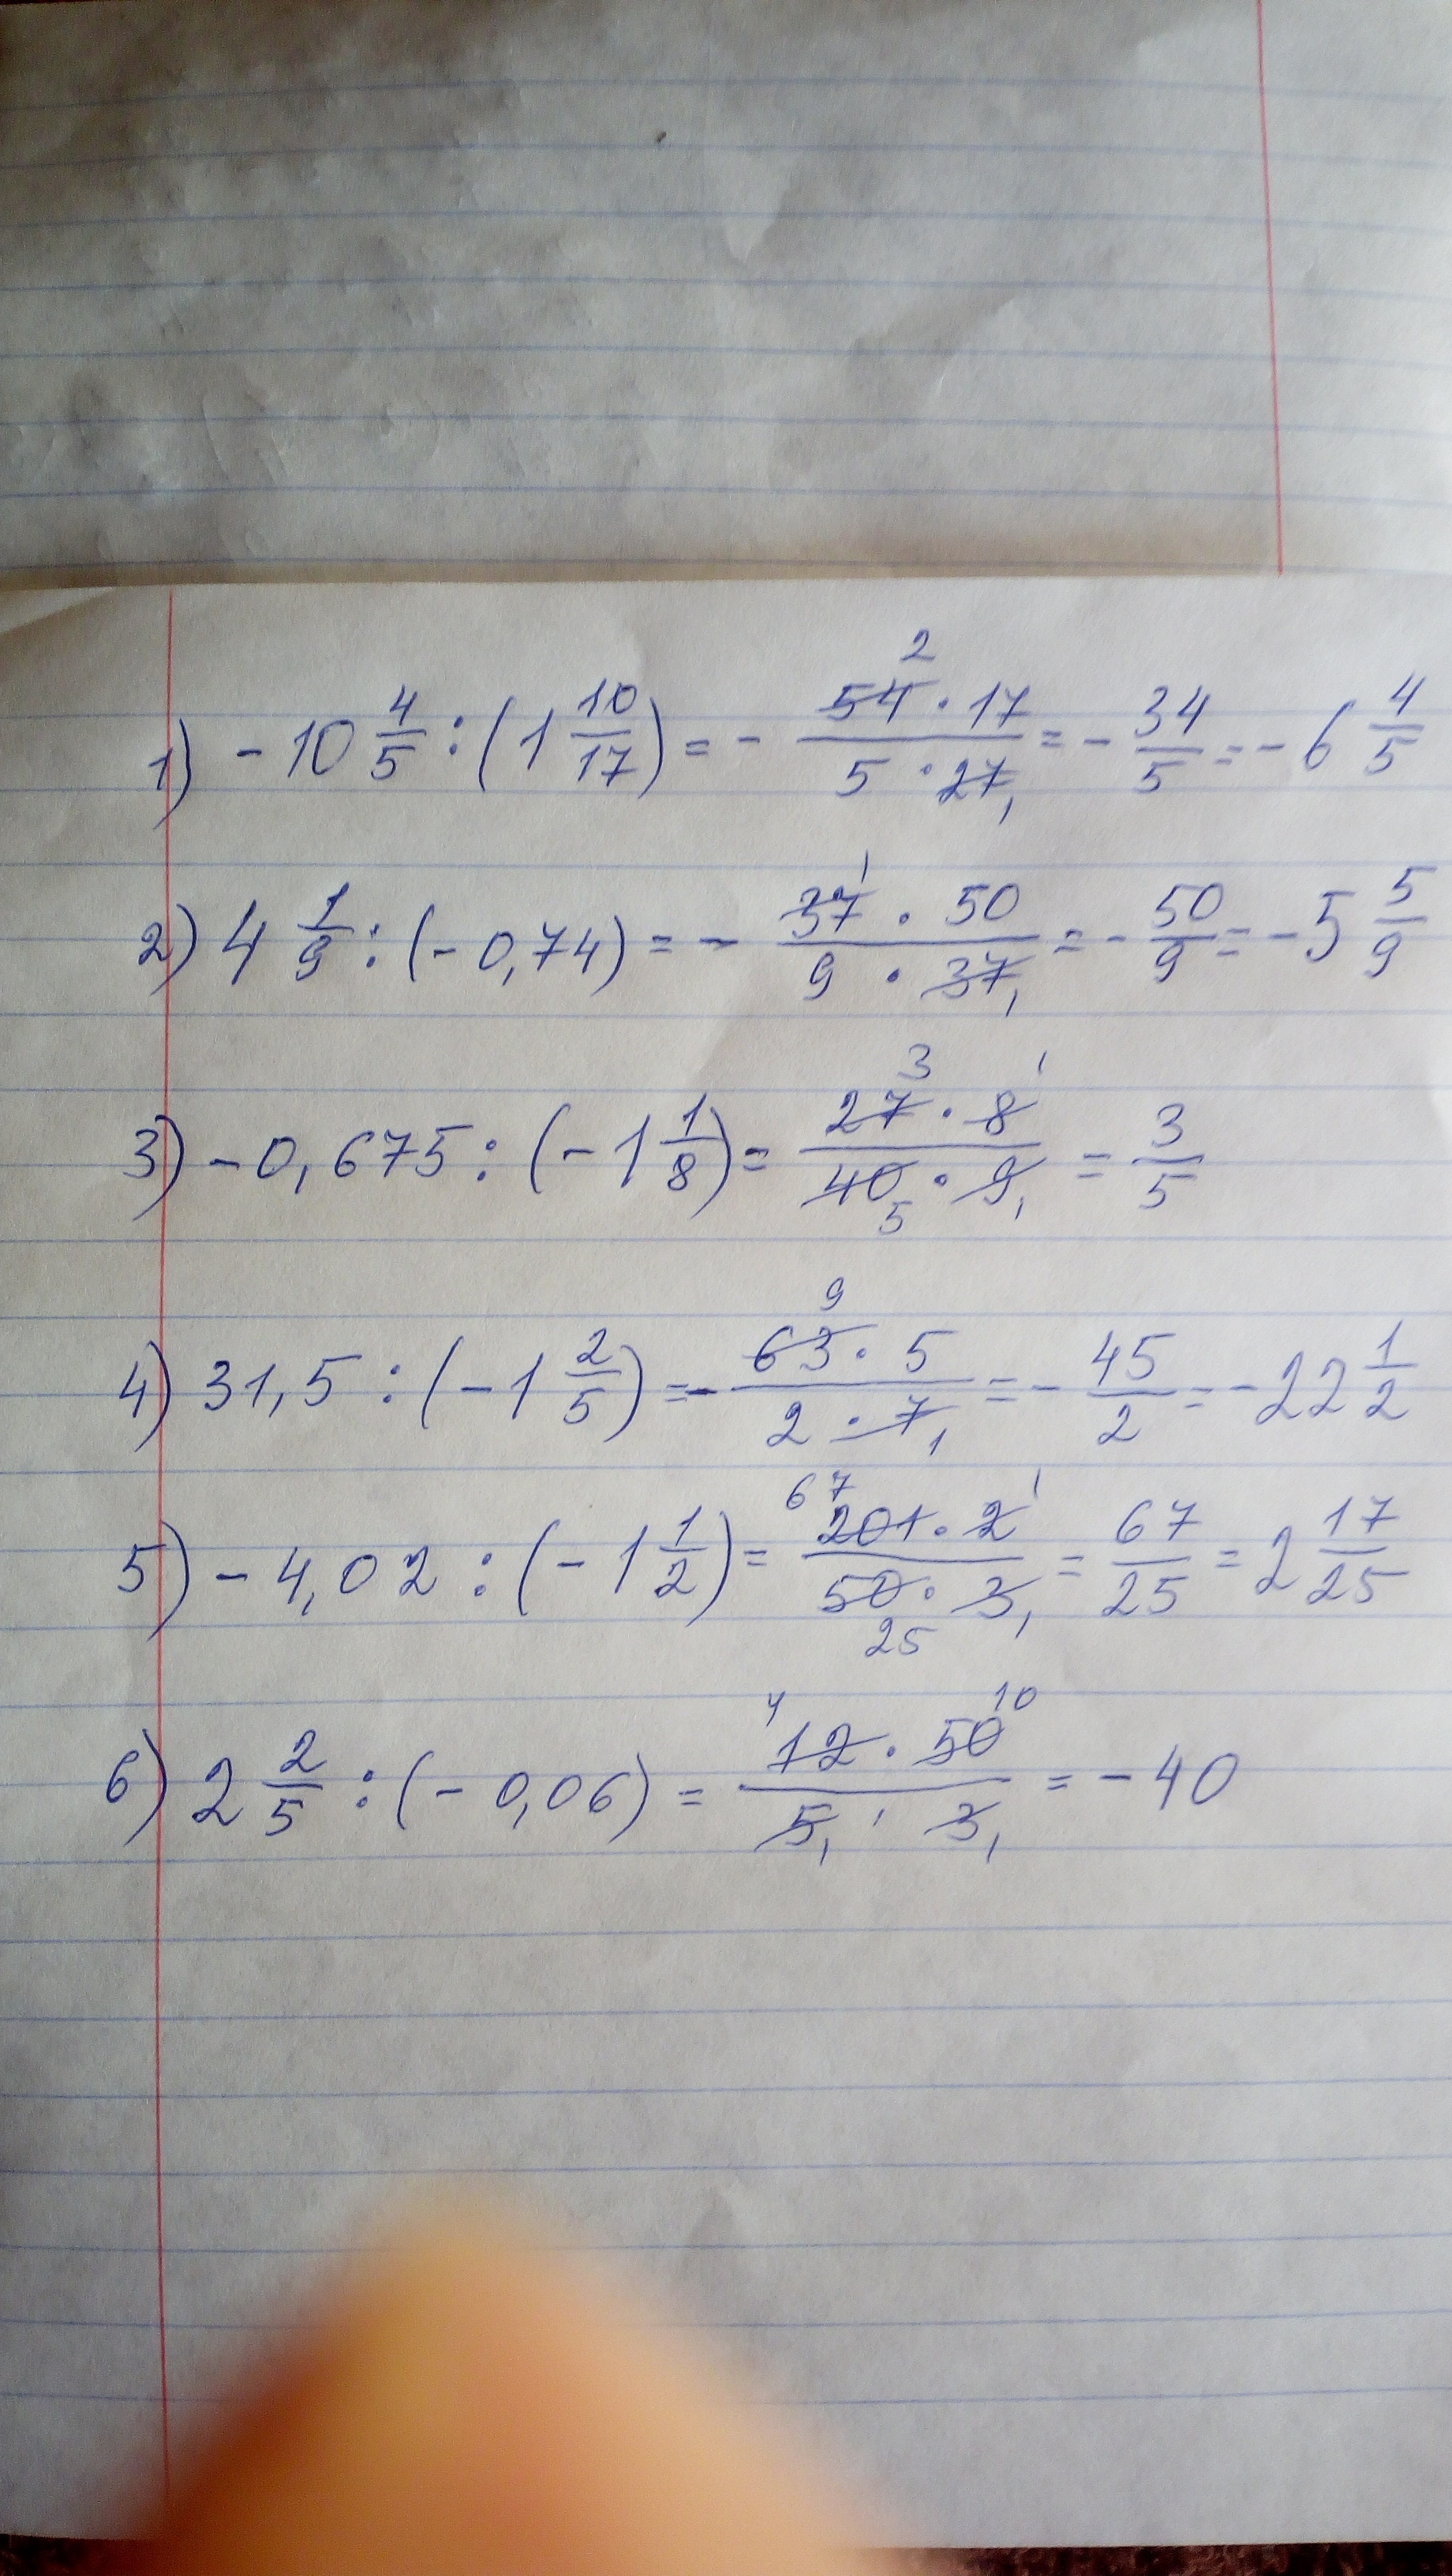 1) - 10 4/5 : (1 10/17) = - 54 · 17 / 5 · 27 = - 34/5 = - 6 4/5
2) 4 1/9 : (- 0,74) = - 37 · 50 / 9 · 37 = - 50/9 = - 5 5/9
3) - 0,675 : (- 1 1/8) = 27 · 8 / 40 · 9 = 3/5
4) 31,5 : (- 1 2/5) = - 63 · 5 / 2 · 7 = - 45/2 = - 22 1/2
5) - 4,02 : (- 1 1/2) = 201 · 2 / 50 · 3 = 67/25 = 2 17/25
6) 2 2/5 : (- 0,06) = 12 · 50 / 5 · 3 = - 40